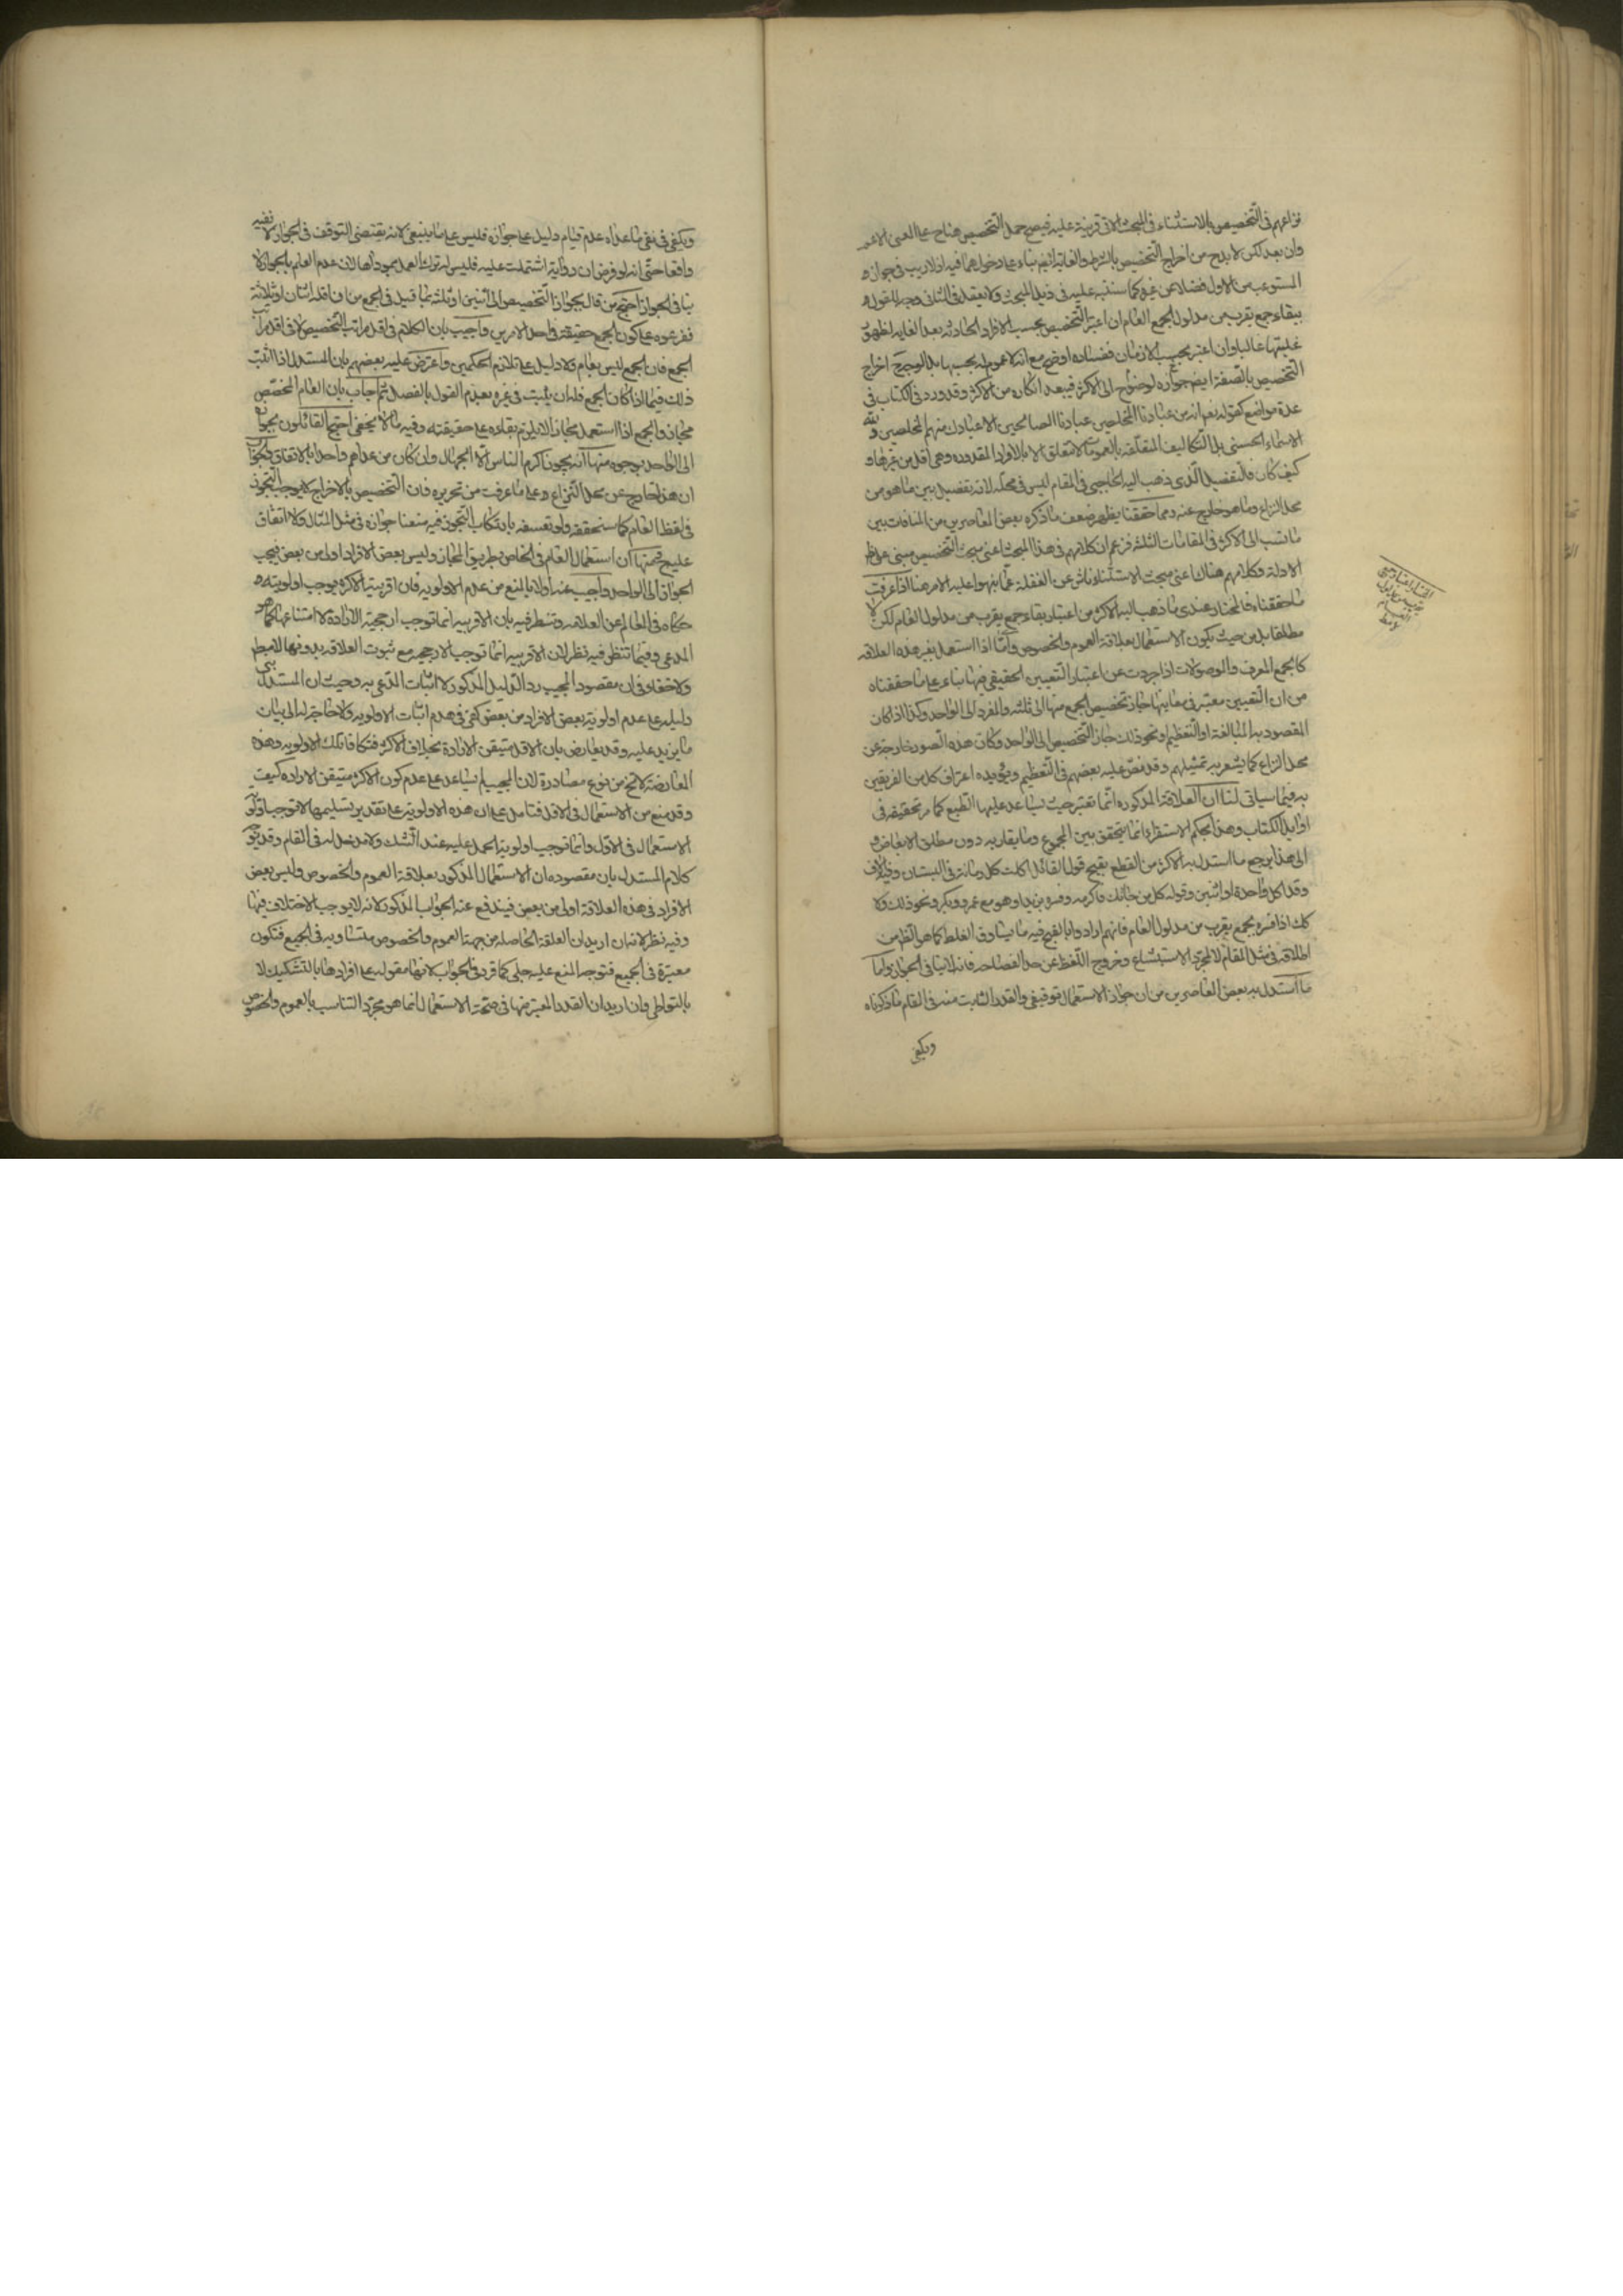 نزاعهم فى التخصيص بالاستثناء فى المبحث الاتى قرينة عليه فيصح حمل التخصيص هناح على المعنى الاعم
وان بعد لكن لا بد ح من اخراج التخصيص بالشرط والغاية ايضم بناء على دخولهما فيه اذ لا ريب فى جوازه
المستوعب من الاول فضلا عن غيره كما سننبه عليه فى ذيل المبحث ولا يعقل فى الثانى وجه للقول
ببقاء جمع يقرب من مدلول الجمع العام ان اعتبر التخصيص بحسب الافراد الحادثه بعد الغايه لظهور
غلبتها غالبا وان اعتبر بحسب الازمان ففساده اوضح مع انه لا عموم له بحسبها بل الوجه ح اخراج
التخصيص بالصفة ايضم جوازه لوضوح الى الاكثر فيبعد انكاره من الاكثر وقد ورد فى الكتاب فى
عدة مواضع كقوله نعم انه من عبادنا المخلصين عبادنا الصالحين الا عبادك منهم المخلصين ولله
الاسماء الحسنى بل التكاليف المتعلقه بالعمومات لا تتعلق الا بالافراد المقدوره وهى اقل من غيرها و
كيف كان فالتفصيل الذى ذهب اليه الحاجبى فى المقام ليس فى محله لانه تفصيل بين ما هو من
محل النزاع وما هو خارج عنه ومما حققنا يظهر ضعف ما ذكره بعض المعاصرين من المنافات بين
ما نسب الى الاكثر فى المقامات الثلثه فزعم ان كلامهم فى هذا المبحث اعنى مبحث التخصيص مبنى على ظ
الادلة وكلامهم هناك اعنى مبحث الاستثناء ناش عن الغفلة عما بنهوا عليه الامر هنا اذا عرفت
ما حققناه فالمختار عندى ما ذهب اليه الاكثر من اعتبار بقاء جمع يقرب من مدلول العام لكن لا
مطلقا بل من حيث يكون الاستعمال بعلاقة العموم والخصوص واما اذا استعمل بغير هذه العلاقه
كالجمع المعرف والموصولات اذا جردت عن اعتبار التعيين الحقيقى فيها بناء على ما حققناه
من ان التعيين معتبر فى معانيها جاز تخصيص الجمع منها الى ثلثه والمفرد الى الواحد وكذا اذا كان
المقصود به المبالغة او التعظيم ونحو ذلك جاز التخصيص الى الواحد وكان هذه الصور خارجة عن
محل النزاع كما يشعر به تمثيلهم وقد نص عليه بعضهم فى التعظيم ويؤيده اعتراف كل من الفريقين
به فيما سياتى لنا ان العلاقة المذكوره انما تعتبر حيث يساعد عليها الطبع كما مر تحقيقه فى
اوايل الكتاب وهذا بحكم الاستقراء انما يتحقق بين المجموع وما يقاربه دون مطلق الابعاض و
الى هذا يرجع ما استدل به الاكثر من القطع بقبح قول القائل اكلت كل رمانة فى البستان وفيه الاف
وقد اكل واحدة او اثنين وقوله كل من جائك فاكرمه وفسره بزيد او هو مع عمرو وبكر ونحو ذلك ولا
كك اذا فسره بجمع يقرب من مدلول العام فانهم ارادوا بالقبح فيه ما يساوق الغلط كما هو الظ من
اطلاقه فى مثل المقام لا مجرد الاستبشاع وخروج اللفظ عن حد الفصاحه فانه لا ينافى الجواز واما
ما استدل به بعض المعاصرين من ان جواز الاستعمال توقيفى والقدر الثابت منه فى المقام ما ذكرناه
ويكفى
ويكفى فى نفى ما عداه عدم قيام دليل على جوازه فليس على ما ينبغى لانه يقتضى التوقف فى الجواز لا نفيه
واقعا حتى انه لو فرض ان رواية اشتملت عليه فليس له ترك العمل بمودأها لان عدم العلم بالجواز لا
ينافى الجواز احتج من قال بجواز التخصيص الى اثنين او ثلثه بما قيل فى الجمع من ان اقله اثنان او ثلاثة
ففرعوه على كون الجمع حقيقة فى احد الامرين واجيب بان الكلام فى اقل مراتب التخصيص لا فى اقل مراتب
الجمع فان الجمع ليس بعام ولا دليل على تلازم الحكمين واعترض عليه بعضهم بان المستدل اذا اثبت
ذلك فيما اذا كان الجمع فله ان يثبت فى غيره بعدم القول بالفصل ثم اجاب بان العام المخصص
مجاز والجمع اذا استعمل مجاز الا يلزم بقاؤه على حقيقته وفيه ما لا يخفى احتج القائلون بجوازه
الى الواحد بوجوه منها انه يجوز اكرم الناس الا الجهال وان كان من عداهم واحدا بالاتفاق والجواب
ان هذا خارج عن محل النزاع وعلى ما عرفت من تحريره فان التخصيص بالاخراج لا يوجب التجوز
فى لفظ العام كما سنحققه ولو تعسفه بارتكاب التجوز فيه منعنا جوازه فى مثل المثال ولا اتفاق
عليه ح ومنها ان استعمال العام فى الخاص بطريق المجاز وليس بعض الافراد اولى من بعض فيجب
الجواز الى الواحد واجيب عنه اولا بالمنع من عدم الاولويه فان اقربية الاكثر يوجب اولويته
حكاه فى المعالم عن العلامه وتنظر فيه بان الاقربيه انما توجب ارجحية الارادة لا امتناعها كما هو
المدعى وفيما تنظر فيه نظر لان الاقربيه انما توجب الارجحيه مع ثبوت العلاقه بدونها لا مطم
ولا خفاء فى ان مقصود المجيب رد الدليل المذكور لا اثبات المدعى به وحيث ان المستدل بنى
دليله على عدم اولوية بعض الافراد من بعض كفى فى هدم اثبات الاولويه ولا حاجة له الى بيان
ما يزيد عليه وقد يعارض بان الاقل متيقن الارادة بخلاف الاكثر فتكافا تلك الاولويه وهذه
المعارضة لا تخ من نوع مصادرة لان المجيب لم يساعد على عدم كون الاكثر متيقن الاراده كيف
وقد منع من الاستعمال فى الاقل فتامل على ان هذه الاولوية على تقدير تسليمها لا توجب اولوية
الاستعمال فى الاول وانما توجب اولوية الحمل عليه عند الشك ولا مدخل له فى المقام وقد يوجه
كلام المستدل بان مقصوده ان الاستعمال المذكور بعلاقة العموم والخصوص وليس بعض
الافراد فى هذه العلاقة اولى من بعض فيندفع عنه الجواب المذكور لانه لا يوجب الاختلاف فيها
وفيه نظر لانه ان اريد ان العلقة الحاصله من جهة العموم والخصوص متساويه فى الجميع فتكون
معتبرة فى الجميع فتوجه المنع عليه جلى كما قرر فى الجواب لانها مقوله على افرادها بالتشكيك لا
بالتواطى وان اريد ان القدر المعتبر منها فى صحة الاستعمال انما هو مجرد التناسب بالعموم والخصوص